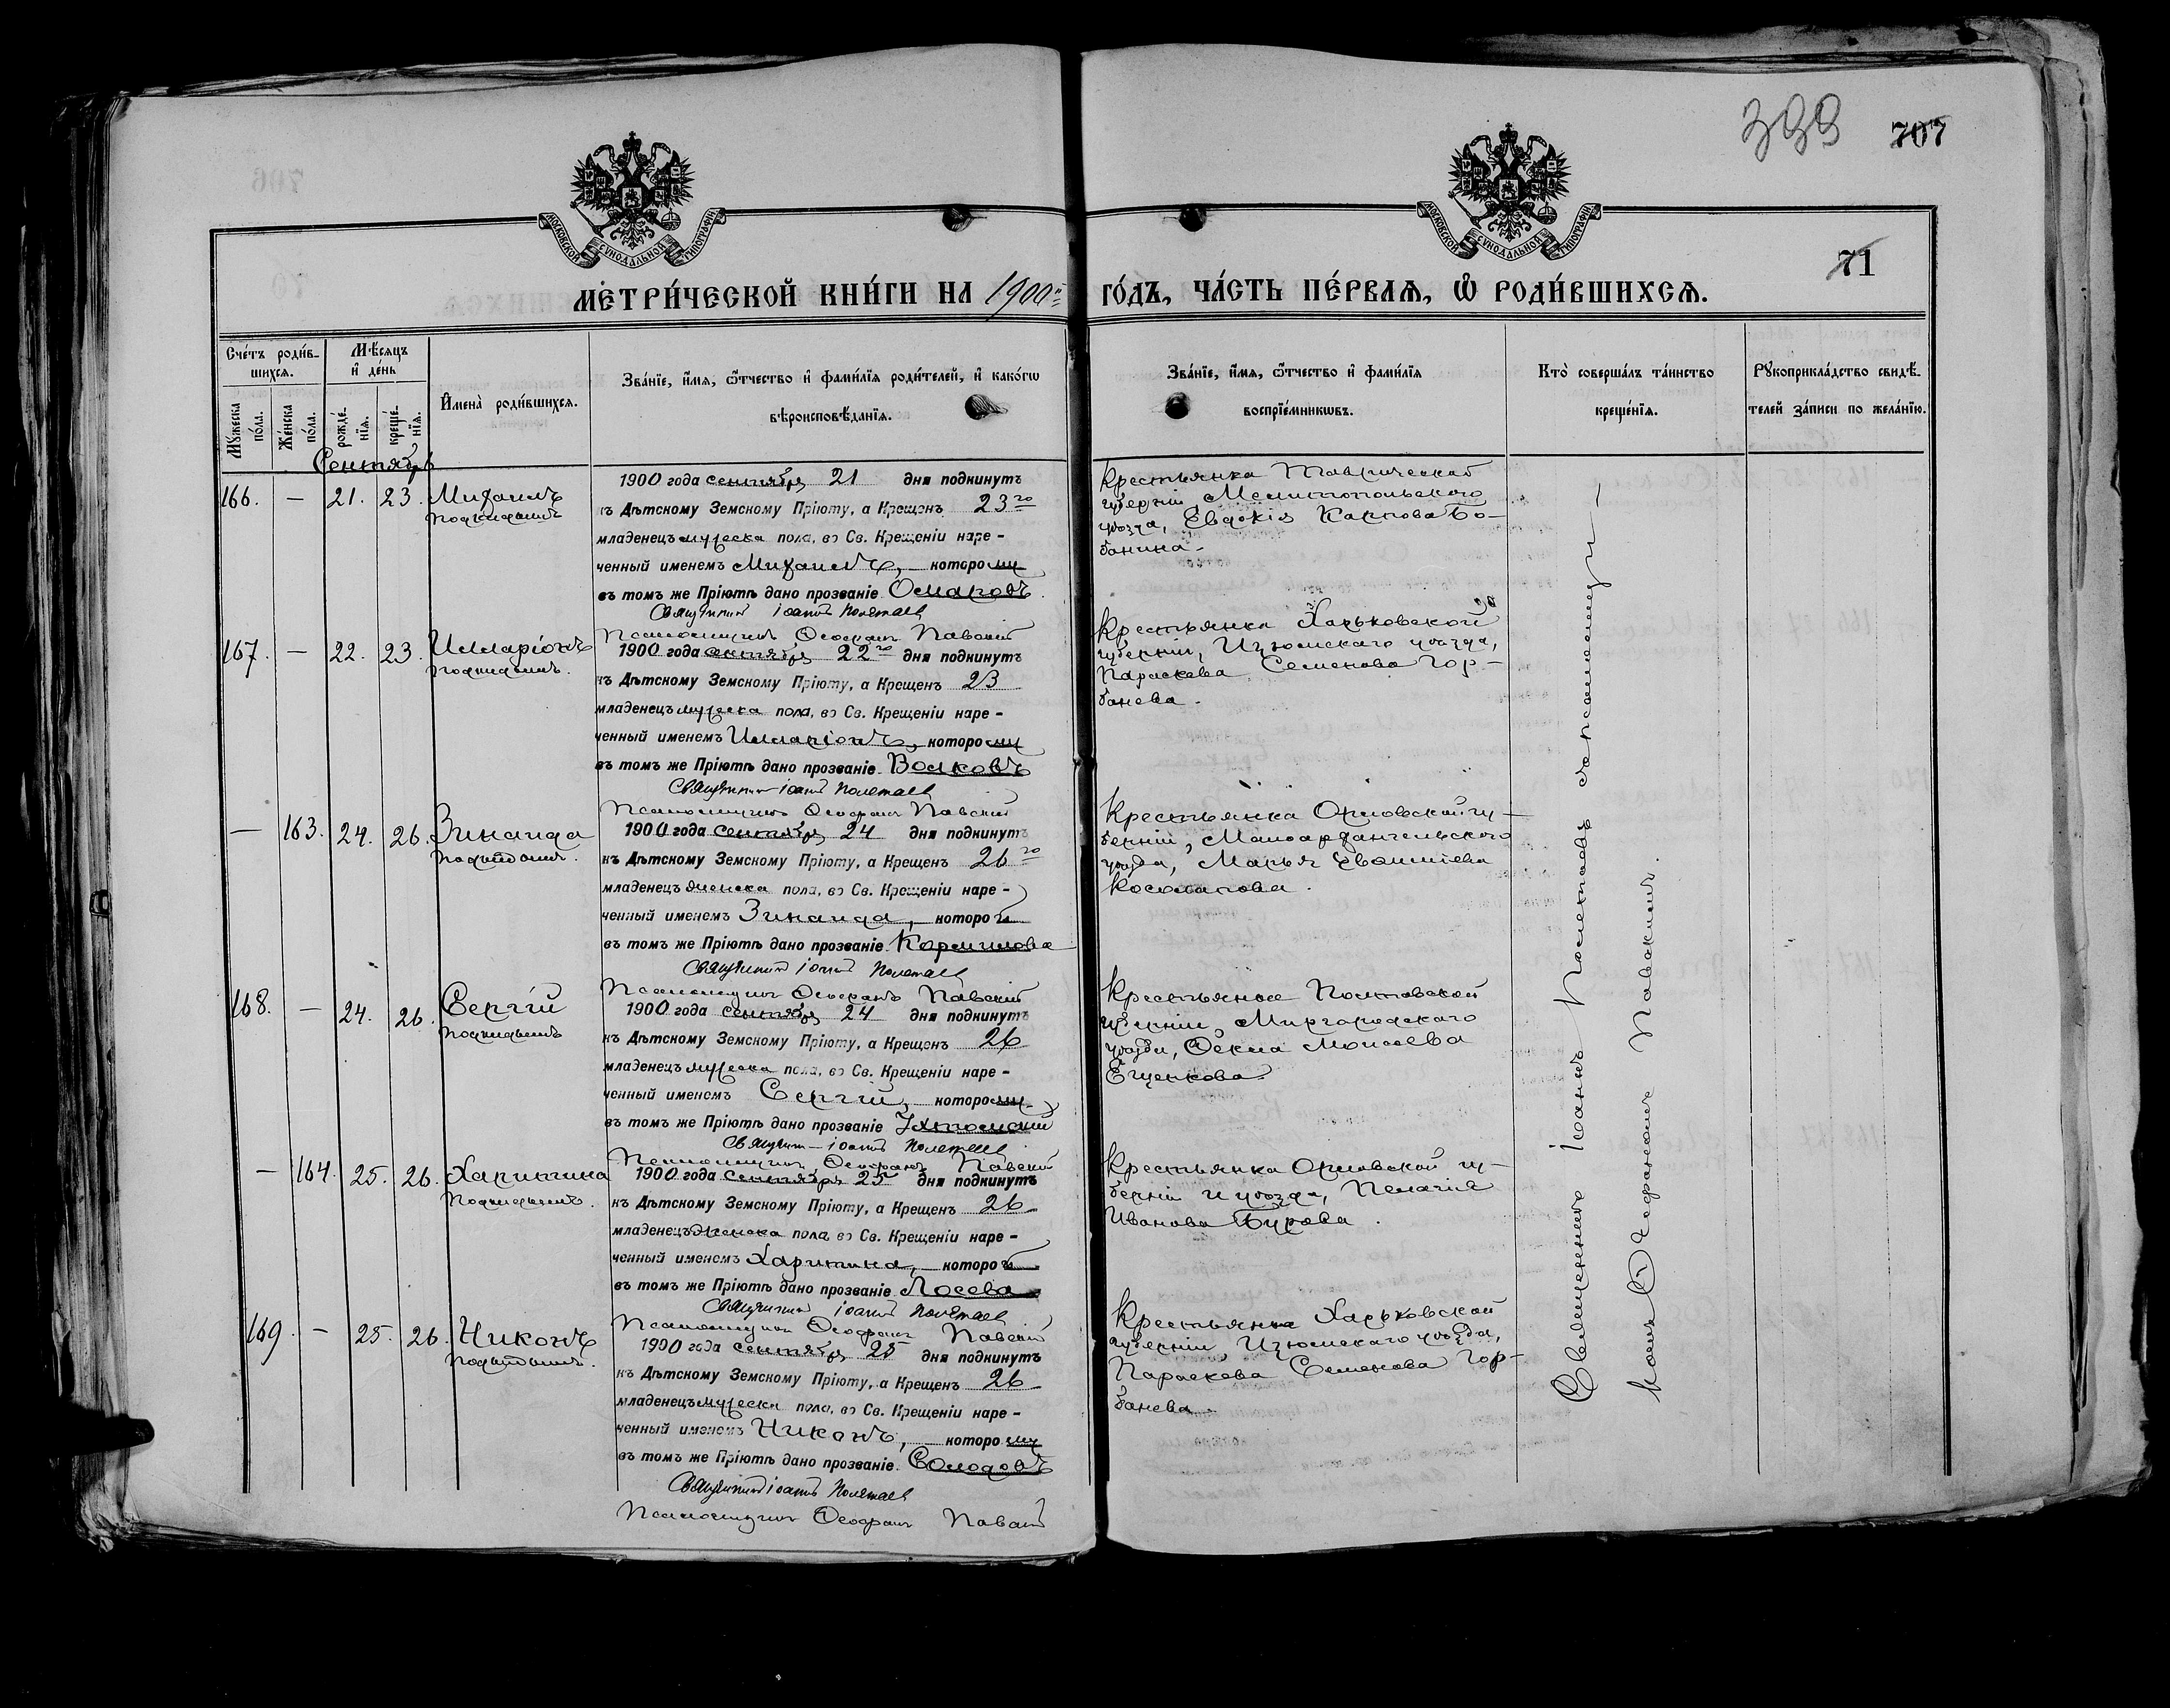 399 707
МОСКОВСКОЙ СѴНОДАЛЬНОЙ ТИПОГРАФІИ
МОСКОВСКОЙ СѴНОДАЛЬНОЙ ТИПОГРАФІИ
71
МЕТРИ́ЧЕСКОЙ КНИ́ГИ НА 1900й ГО́ДЪ, ЧА́СТЬ ПЕ́РВАѦ, Ѡ РОДИ́ВШИХСѦ.
Сче́тъ роди́в-
шихсѧ.
Мꙋ́жеска по́ла.
Же́нска по́ла.
Мѣ́сѧцъ и҆ де́нь
рожде́-нїѧ.
креще́-нїѧ.
И҆мена̀ роди́вшихсѧ.
Зва́нїе, и҆́мѧ, ѻ҆́тчество и҆ фами́лїѧ роди́телей, и҆ како́гѡ
вѣроисповѣ́данїѧ.
Зва́нїе, и҆́мѧ, ѻ҆́тчество и҆ фами́лїѧ
воспрїе́мникѡвъ.
Кто̀ соверша́лъ та́инство
креще́нїѧ.
Рꙋкоприкла́дство свидѣ́-
телей за́писи по жела́нїю.
Сентябрь
166. — 21. 23. Михаилъ
подкидышъ
1900 года сентября 21 дня подкинутъ
къ Дѣтскому Земскому Пріюту, а Крещенъ 23го
младенецъ мужеска пола, во Св. Крещеніи наре-
ченный именемъ Михаилъ, которому
въ томъ же Пріютѣ дано прозваніе
Священникъ Іоаннъ Полетаевъ
Псаломщикъ Ѳеофанъ Павскій
Крестьянка Таврической
губерніи Мелитопольскаго
уѣзда, Евдокія Карпова Бо-
банина.
167. — 22. 23. Илларіонъ
подкидышъ.
1900 года сентября 22го дня подкинутъ
къ Дѣтскому Земскому Пріюту, а Крещенъ 23
младенецъ мужеска пола, во Св. Крещеніи наре-
ченный именемъ Илларіонъ, которому
въ томъ же Пріютѣ дано прозваніе Волковъ
Священникъ Іоаннъ Полетаевъ
Псаломщикъ Ѳеофанъ Павскій
Крестьянка Харьковской
губерніи, Изюмскаго уѣзда,
Параскева Семенова Гор-
банева.
— 163. 24. 26. Зинаида
подкидышъ.
1900 года сентября 24 дня подкинутъ
къ Дѣтскому Земскому Пріюту, а Крещенъ 26го
младенецъ женска пола, во Св. Крещеніи наре-
ченный именемъ Зинаида, которой
въ томъ же Пріютѣ дано прозваніе
Священникъ Іоаннъ Полетаевъ
Псаломщикъ Ѳеофанъ Павскій
Крестьянка Орловской гу-
берніи, Малоархангельскаго
уѣзда, Марья
Косолапова.
168. — 24. 26. Сергій
подкидышъ
1900 года сентября 24 дня подкинутъ
къ Дѣтскому Земскому Пріюту, а Крещенъ 26
младенецъ мужеска пола, во Св. Крещеніи наре-
ченный именемъ Сергій, которому
въ томъ же Пріютѣ дано прозваніе
Священникъ Іоаннъ Полетаевъ
Псаломщикъ Ѳеофанъ Павскій
Крестьянка Полтавской
губерніи, Миргородскаго
уѣзда, Ѳекла Моисеева
Егценкова.
— 164. 25. 26. Харитина
подкидышъ.
1900 года сентября 25 дня подкинутъ
къ Дѣтскому Земскому Пріюту, а Крещенъ 26
младенецъ женска пола, во Св. Крещеніи наре-
ченный именемъ Харитина, которой
въ томъ же Пріютѣ дано прозваніе Лосева
Священникъ Іоаннъ Полетаевъ
Псаломщикъ Ѳеофанъ Павскій
Крестьянка Орловской гу-
берніи и уѣзда, Пелагія
Иванова Бурова.
169. — 25. 26. Никонъ
подкидышъ.
1900 года сентября 25 дня подкинутъ
къ Дѣтскому Земскому Пріюту, а Крещенъ 26
младенецъ мужеска пола, во Св. Крещеніи наре-
ченный именемъ Никонъ, которому
въ томъ же Пріютѣ дано прозваніе Солодовъ
Священникъ Іоаннъ Полетаевъ
Псаломщикъ Ѳеофанъ Павскій
Крестьянка Харьковской
губерніи, Изюмскаго уѣзда,
Параскева Семенова Гор-
банева.
Священникъ Іоаннъ Полетаевъ съ псаломщи-
комъ Ѳеофаномъ Павскимъ.